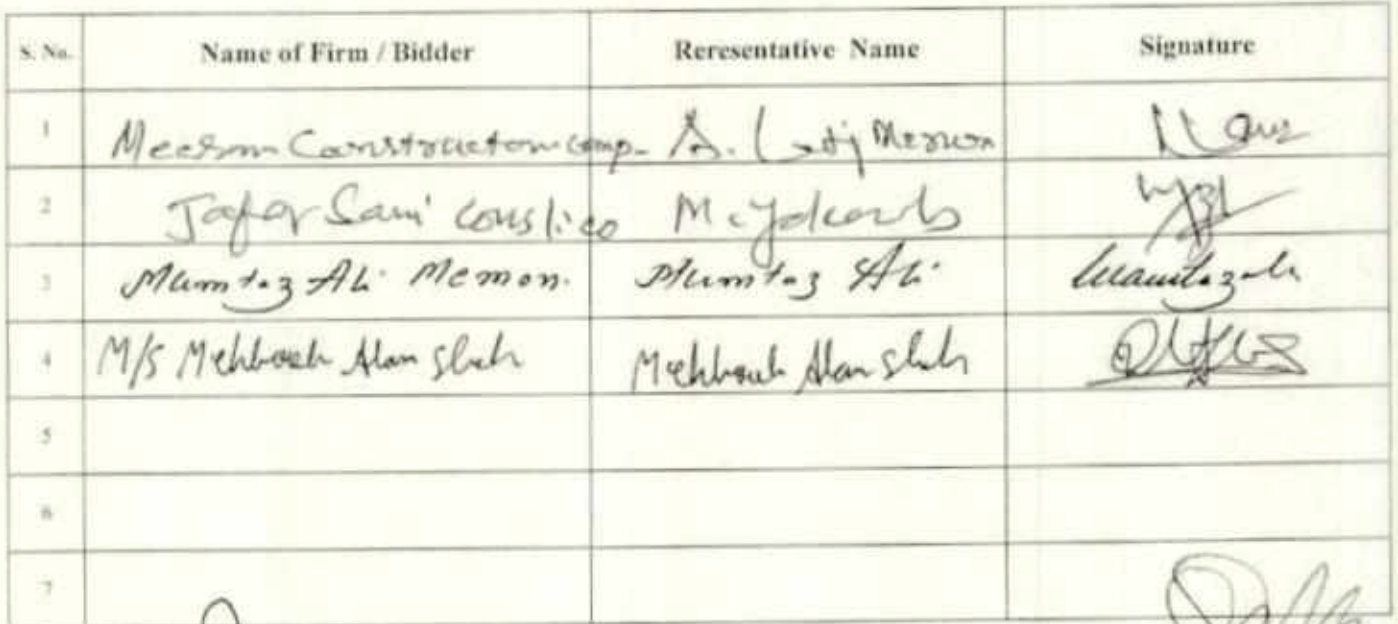 S. No. Name of Firm / Bidder Reresentative Name Signature
1 Meehran Construction comp- A. Latif Memon
2 Jafar Sami Cons/: co M. Yakoub
3 Mumtaz Ali Memon. Mumtaz Ali Mumtaz ali
4 M/S Mehboob Alam Shah Mehboob Alam Shah
5
6
7